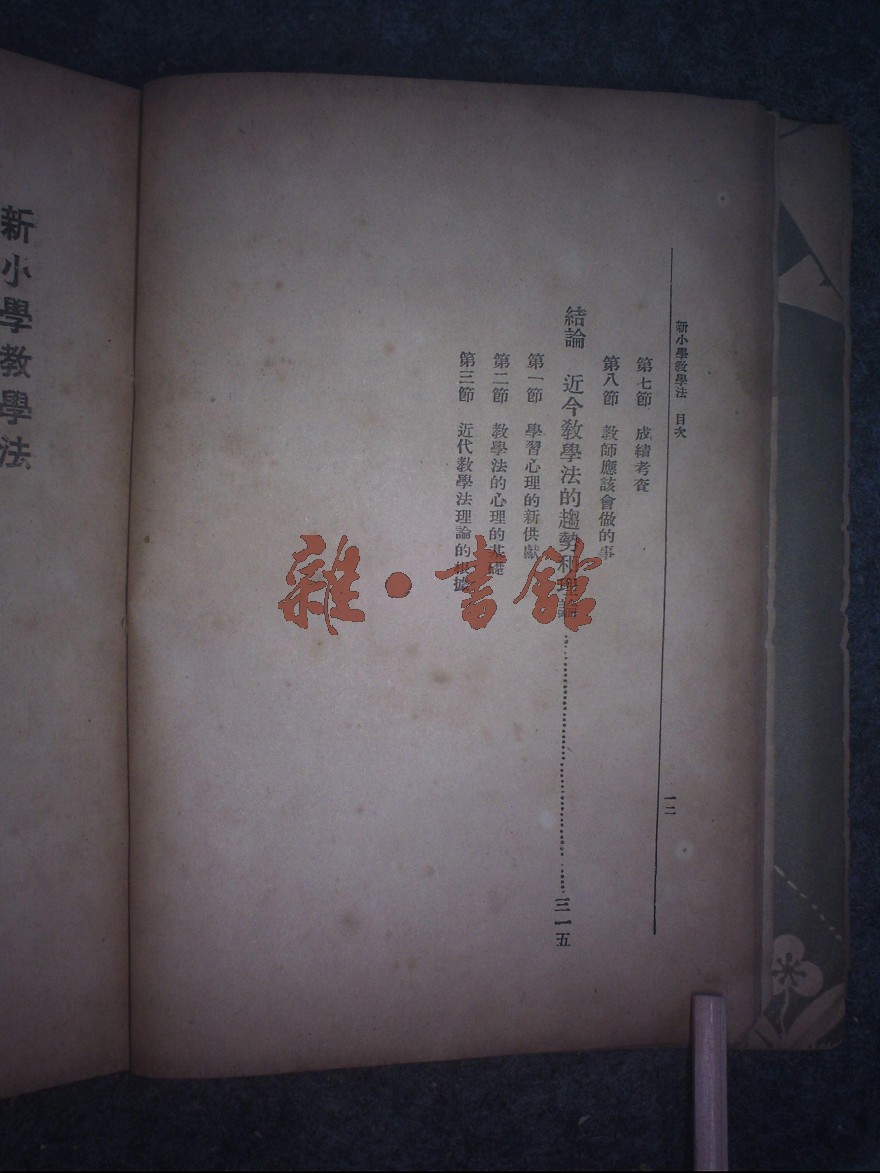 新小學教學法　目次
一二
第七節　成績考查
第八節　教師應該會做的事
結論　近今教學法的趨勢和理論……三一五
第一節　學習心理的新供獻
第二節　教學法的心理的基礎
第三節　近代教學法理論的根據
新小學教學法
雜·書館